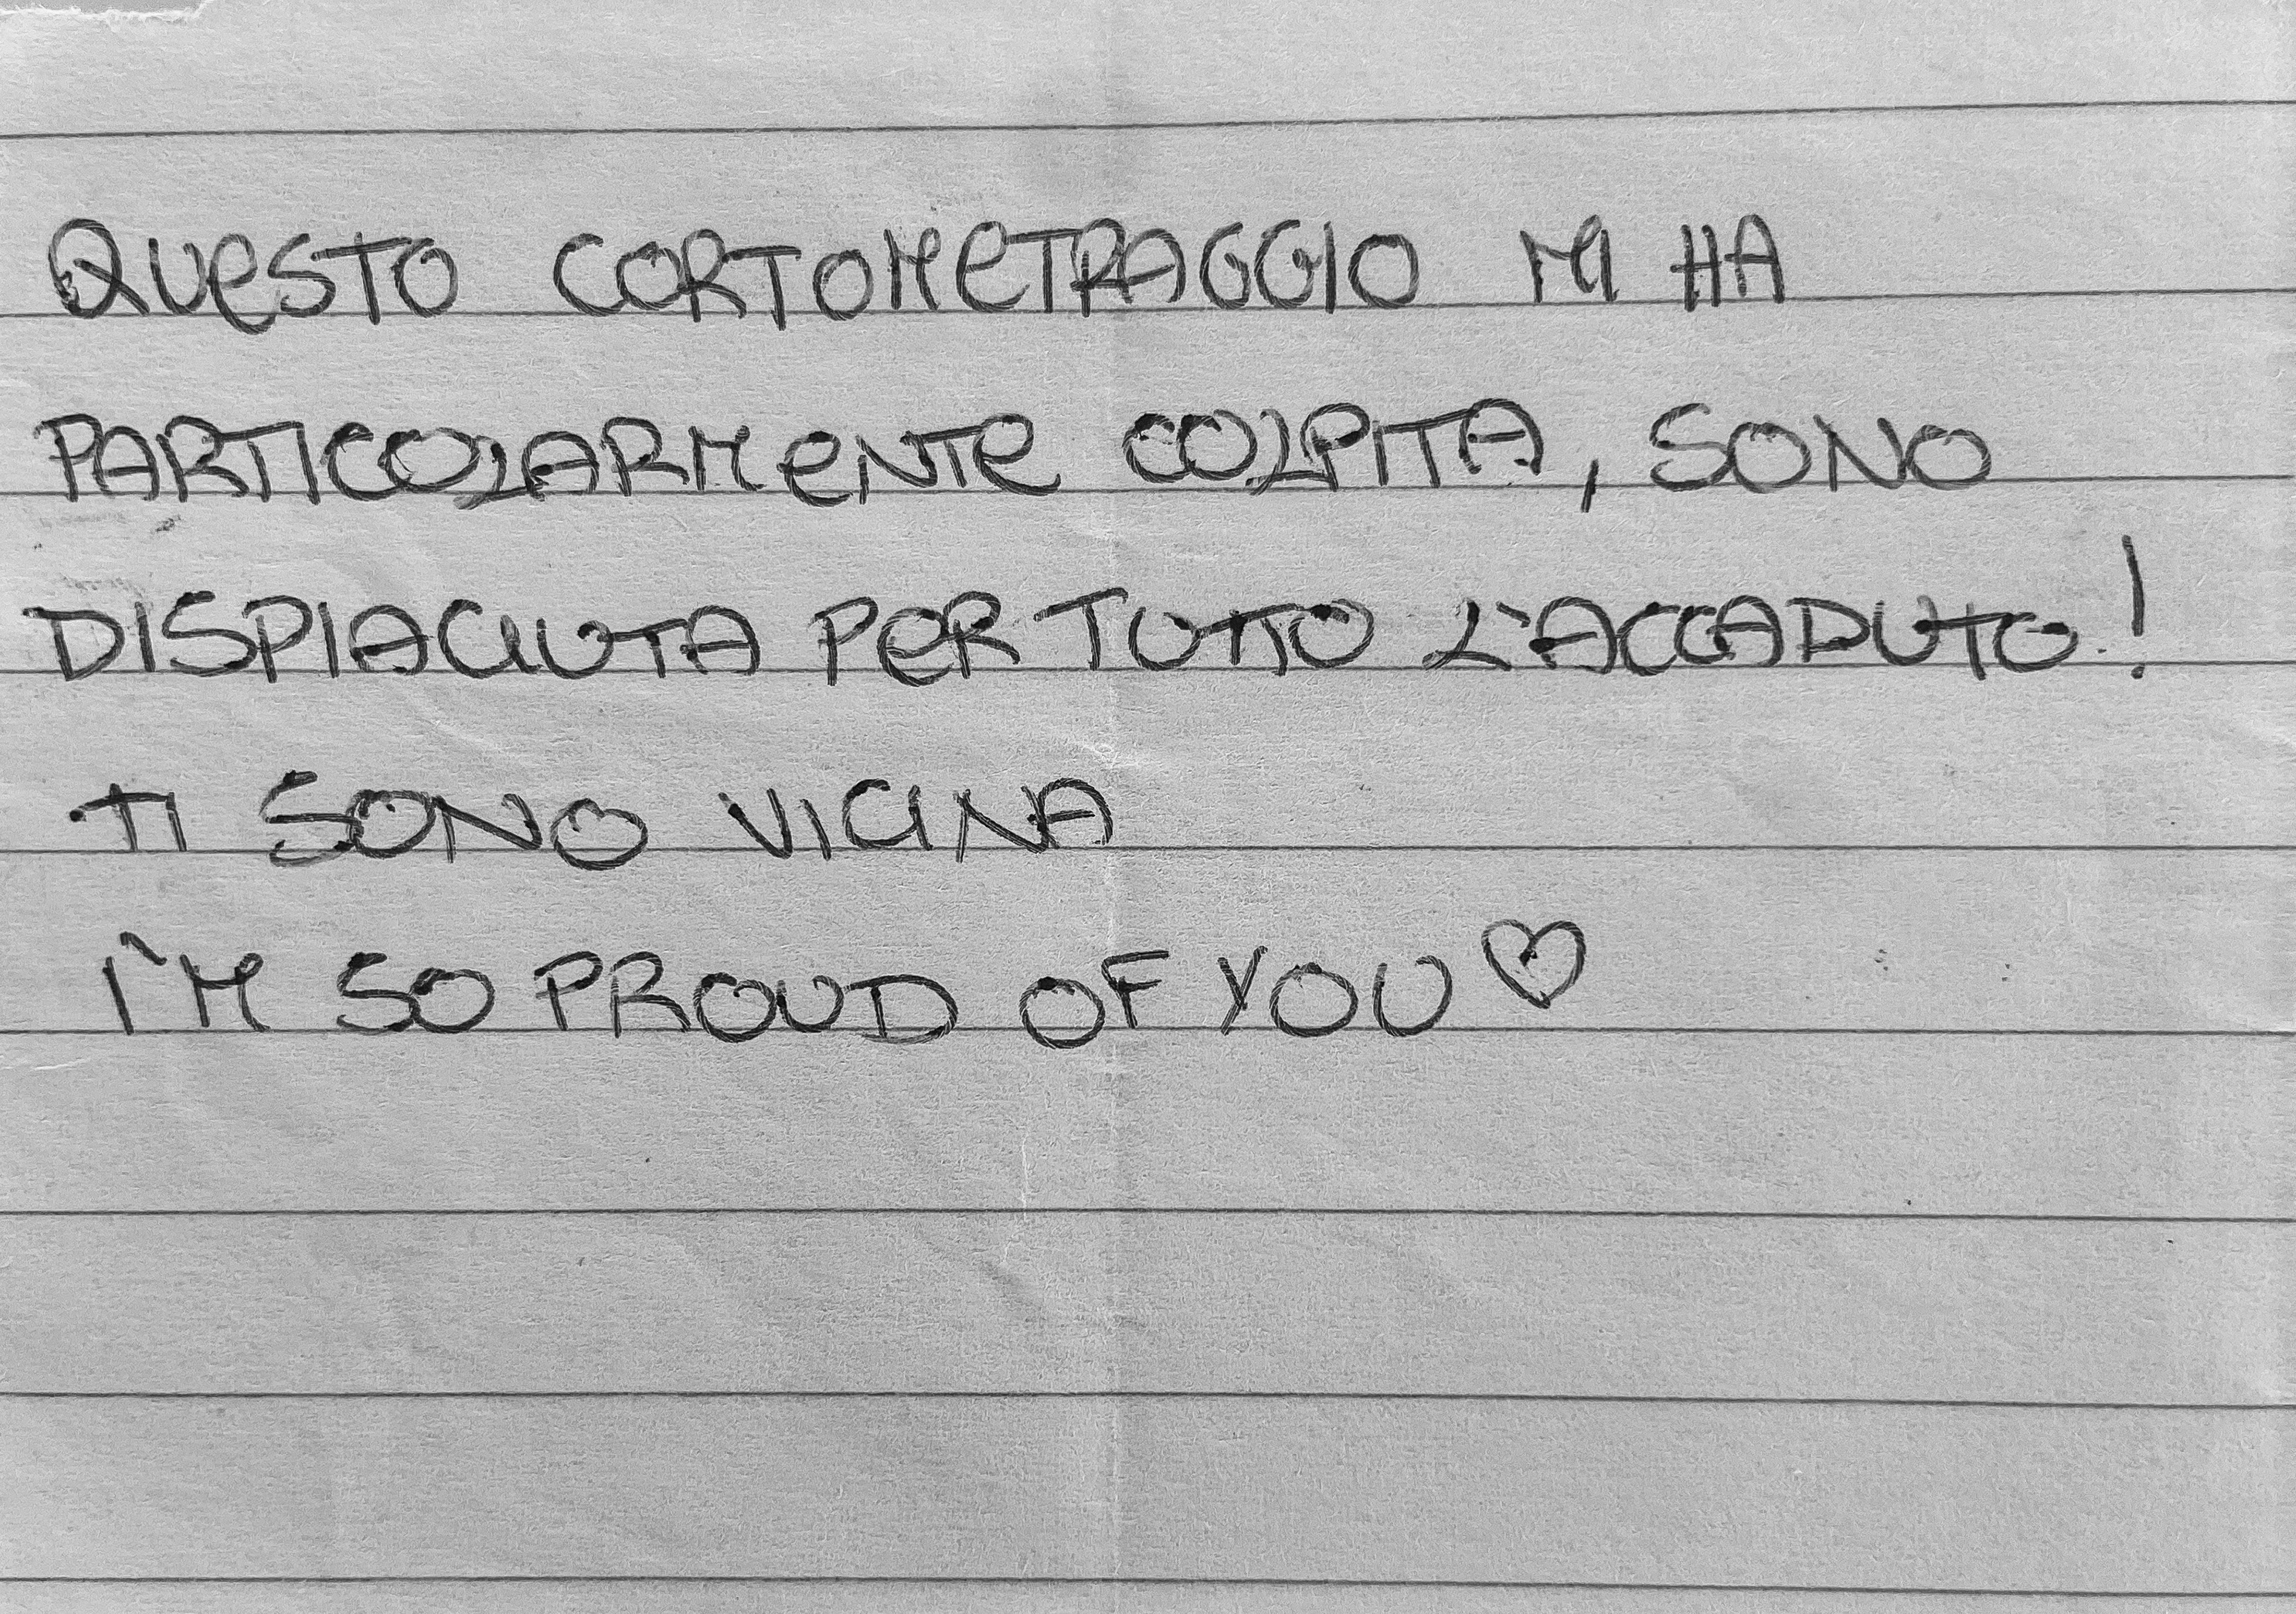 QUESTO CORTOMETRAGGIO MI HA
PARTICOLARMENTE COLPITA, SONO
DISPIACIUTA PER TUTTO L'ACCADUTO!
TI SONO VICINA
I'M SO PROUD OF YOU ♡